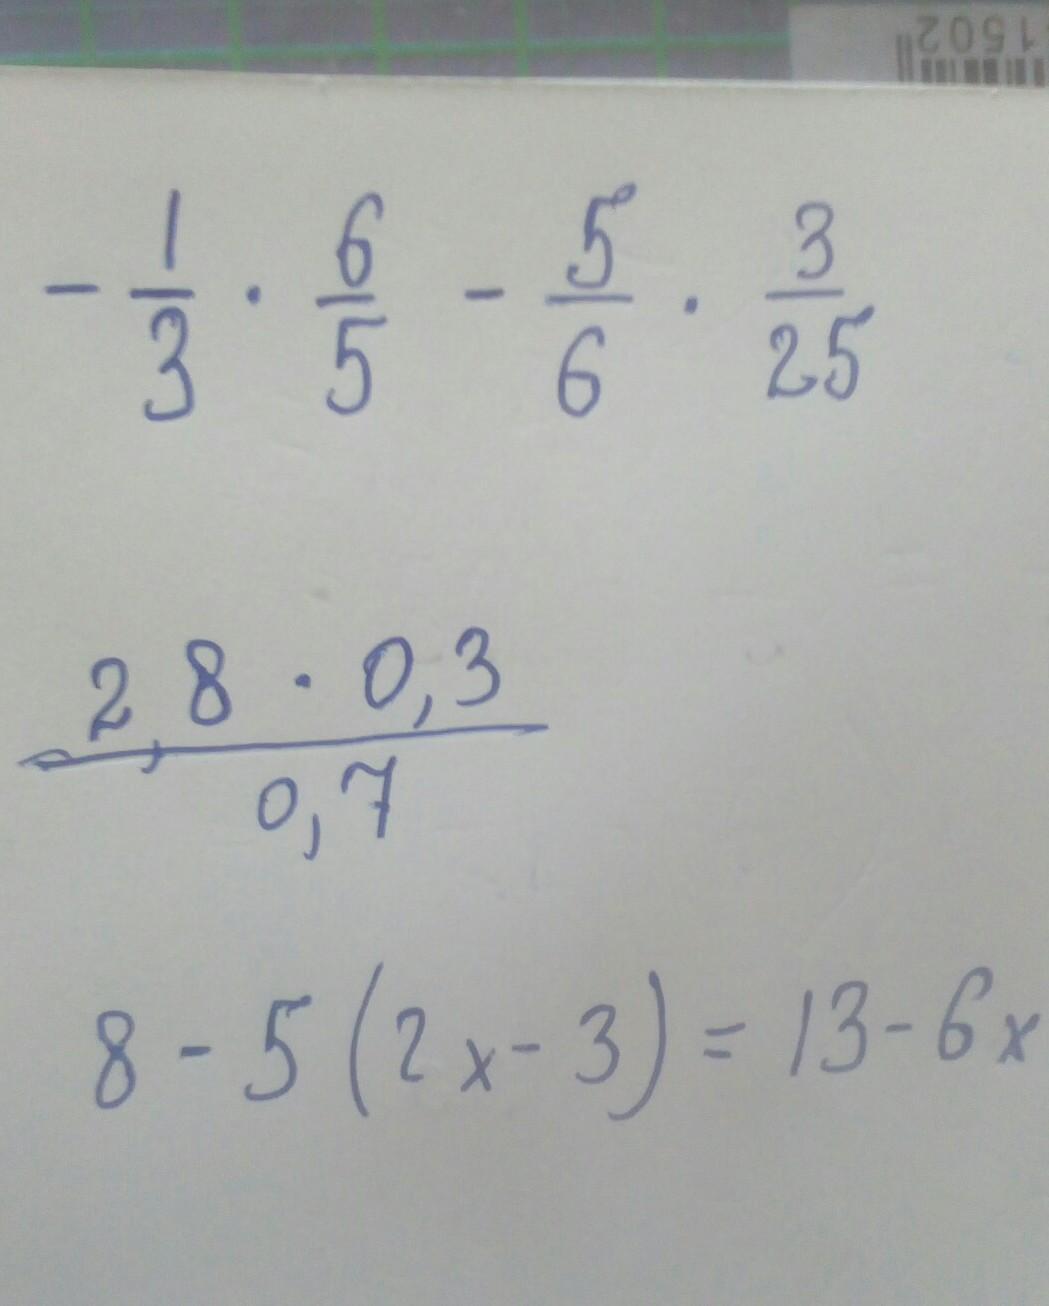 1502
- 1/3 · 6/5 - 5/6 · 3/25
2,8 · 0,3
0,7
8 - 5 (2x - 3) = 13 - 6x